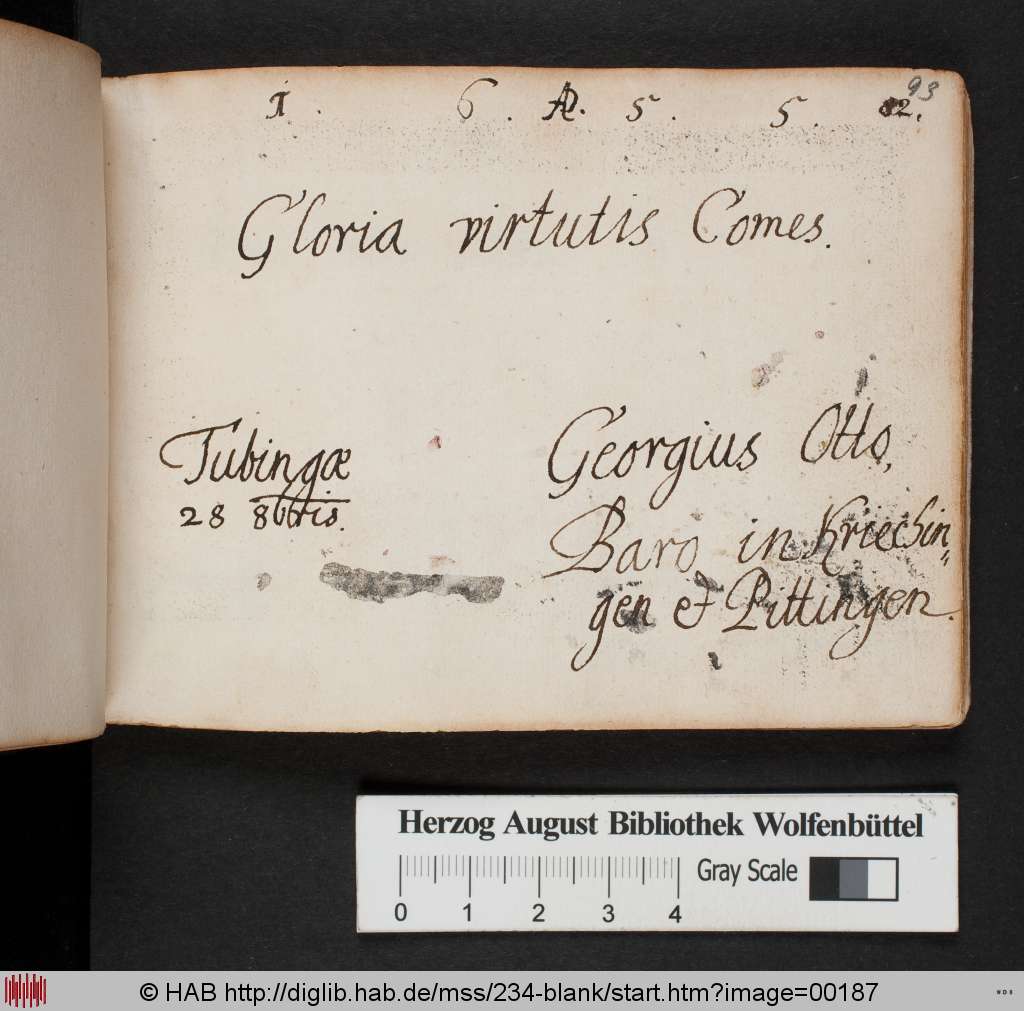 1. 6. AD. 5. 5. 82.
93
Gloria virtutis Comes.
Tubingæ
28 8bris.
Georgius Otto,
Baro in Kriechin„
gen et Pittingen.
Herzog August Bibliothek Wolfenbüttel
Gray Scale
0 1 2 3 4
© HAB http://diglib.hab.de/mss/234-blank/start.htm?image=00187